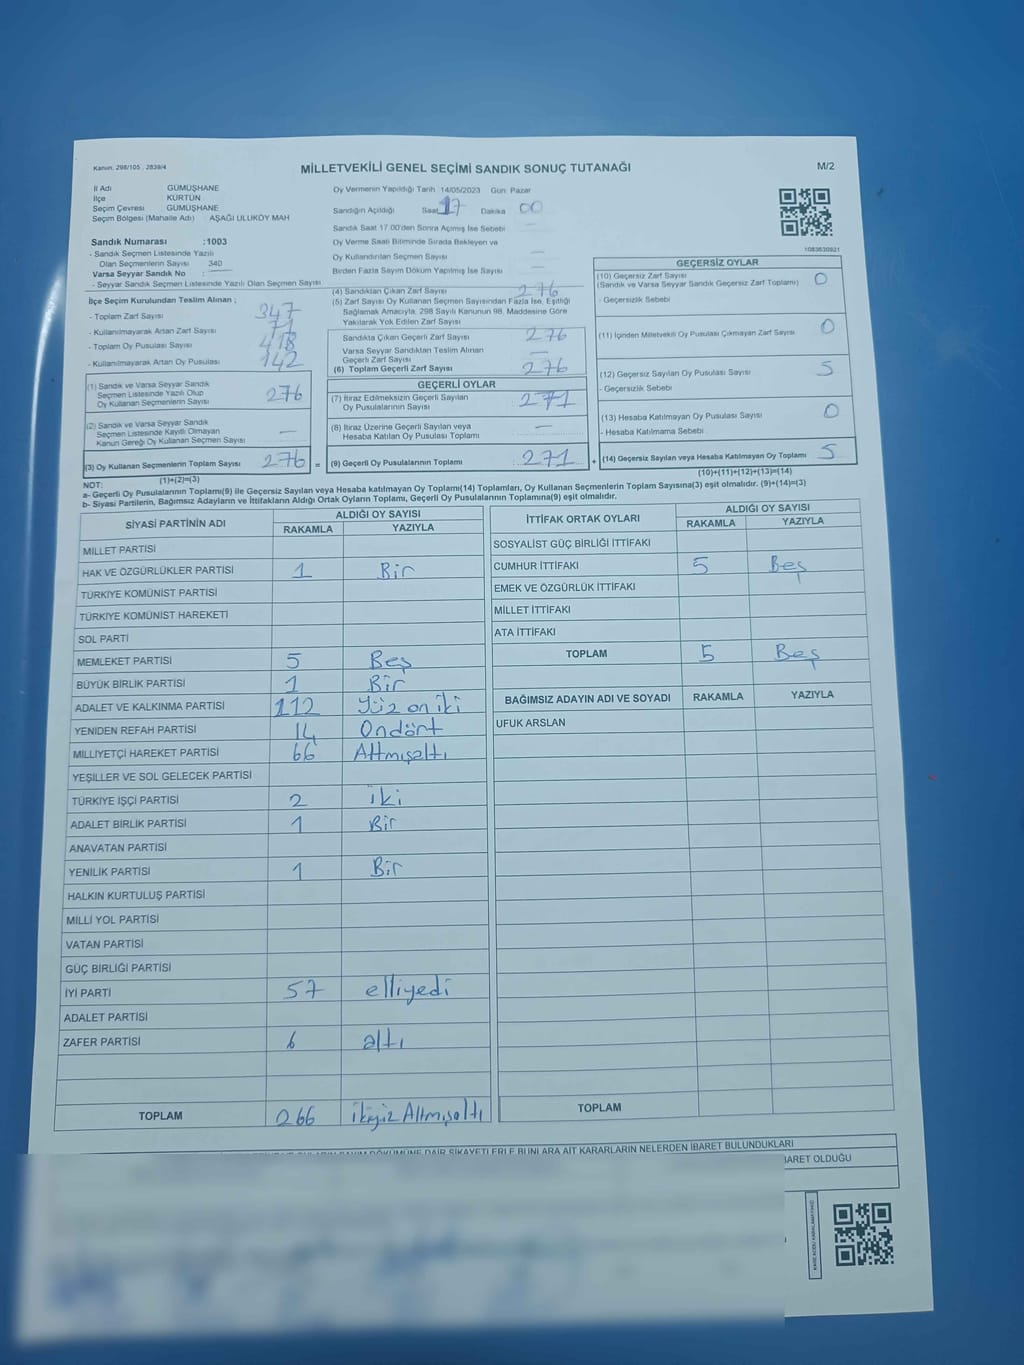 Kanun. 298/105 . 2839/4
MİLLETVEKİLİ GENEL SEÇİMİ SANDIK SONUÇ TUTANAĞI
M/2
İl Adı GÜMÜŞHANE
İlçe KÜRTÜN
Seçim Çevresi GÜMÜŞHANE
Seçim Bölgesi (Mahalle Adı) AŞAĞI ULUKÖY MAH
Sandık Numarası :1003
- Sandık Seçmen Listesinde Yazılı
Olan Seçmenlerin Sayısı 340
Varsa Seyyar Sandık No : —
- Seyyar Sandık Seçmen Listesinde Yazılı Olan Seçmen Sayısı
İlçe Seçim Kurulundan Teslim Alınan ;
- Toplam Zarf Sayısı 347
- Kullanılmayarak Artan Zarf Sayısı 71
- Toplam Oy Pusulası Sayısı 418
- Kullanılmayarak Artan Oy Pusulası 142
(1) Sandık ve Varsa Seyyar Sandık
Seçmen Listesinde Yazılı Olup
Oy Kullanan Seçmenlerin Sayısı 276
(2) Sandık ve Varsa Seyyar Sandık
Seçmen Listesinde Kayıtlı Olmayan
Kanun Gereği Oy Kullanan Seçmen Sayısı —
(3) Oy Kullanan Seçmenlerin Toplam Sayısı 276 =
(1)+(2)=(3)
Oy Vermenin Yapıldığı Tarih 14/05/2023 Gün: Pazar
Sandığın Açıldığı Saat 17 Dakika 00
Sandık Saat 17:00'den Sonra Açılmış İse Sebebi —
Oy Verme Saati Bitiminde Sırada Bekleyen ve
Oy Kullandırılan Seçmen Sayısı —
Birden Fazla Sayım Döküm Yapılmış İse Sayısı —
(4) Sandıktan Çıkan Zarf Sayısı 276
(5) Zarf Sayısı Oy Kullanan Seçmen Sayısından Fazla İse, Eşitliği
Sağlamak Amacıyla, 298 Sayılı Kanunun 98. Maddesine Göre
Yakılarak Yok Edilen Zarf Sayısı
Sandıkta Çıkan Geçerli Zarf Sayısı 276
Varsa Seyyar Sandıktan Teslim Alınan
Geçerli Zarf Sayısı —
(6) Toplam Geçerli Zarf Sayısı 276
GEÇERLİ OYLAR
(7) İtiraz Edilmeksizin Geçerli Sayılan
Oy Pusulalarının Sayısı 271
(8) İtiraz Üzerine Geçerli Sayılan veya
Hesaba Katılan Oy Pusulası Toplamı —
(9) Geçerli Oy Pusulalarının Toplamı 271 +
1083630921
GEÇERSİZ OYLAR
(10) Geçersiz Zarf Sayısı
(Sandık ve Varsa Seyyar Sandık Geçersiz Zarf Toplamı) 0
- Geçersizlik Sebebi
(11) İçinden Milletvekili Oy Pusulası Çıkmayan Zarf Sayısı 0
(12) Geçersiz Sayılan Oy Pusulası Sayısı 5
- Geçersizlik Sebebi
(13) Hesaba Katılmayan Oy Pusulası Sayısı 0
- Hesaba Katılmama Sebebi
(14) Geçersiz Sayılan veya Hesaba Katılmayan Oy Toplamı 5
(10)+(11)+(12)+(13)=(14)
NOT:
a- Geçerli Oy Pusulalarının Toplamı(9) ile Geçersiz Sayılan veya Hesaba katılmayan Oy Toplamı(14) Toplamları, Oy Kullanan Seçmenlerin Toplam Sayısına(3) eşit olmalıdır. (9)+(14)=(3)
b- Siyasi Partilerin, Bağımsız Adayların ve İttifakların Aldığı Ortak Oyların Toplamı, Geçerli Oy Pusulalarının Toplamına(9) eşit olmalıdır.
SİYASİ PARTİNİN ADI ALDIĞI OY SAYISI
RAKAMLA YAZIYLA
MİLLET PARTİSİ
HAK VE ÖZGÜRLÜKLER PARTİSİ 1 Bir
TÜRKİYE KOMÜNİST PARTİSİ
TÜRKİYE KOMÜNİST HAREKETİ
SOL PARTİ
MEMLEKET PARTİSİ 5 Beş
BÜYÜK BİRLİK PARTİSİ 1 Bir
ADALET VE KALKINMA PARTİSİ 112 Yüz on iki
YENİDEN REFAH PARTİSİ 14 Ondört
MİLLİYETÇİ HAREKET PARTİSİ 66 Altmışaltı
YEŞİLLER VE SOL GELECEK PARTİSİ
TÜRKİYE İŞÇİ PARTİSİ 2 iki
ADALET BİRLİK PARTİSİ 1 Bir
ANAVATAN PARTİSİ
YENİLİK PARTİSİ 1 Bir
HALKIN KURTULUŞ PARTİSİ
MİLLİ YOL PARTİSİ
VATAN PARTİSİ
GÜÇ BİRLİĞİ PARTİSİ
İYİ PARTİ 57 elliyedi
ADALET PARTİSİ
ZAFER PARTİSİ 6 altı
TOPLAM 266 ikiyüz Altmışaltı
İTTİFAK ORTAK OYLARI ALDIĞI OY SAYISI
RAKAMLA YAZIYLA
SOSYALİST GÜÇ BİRLİĞİ İTTİFAKI
CUMHUR İTTİFAKI 5 Beş
EMEK VE ÖZGÜRLÜK İTTİFAKI
MİLLET İTTİFAKI
ATA İTTİFAKI
TOPLAM 5 Beş
BAĞIMSIZ ADAYIN ADI VE SOYADI RAKAMLA YAZIYLA
UFUK ARSLAN
TOPLAM
DÖKÜMÜNE DAİR ŞİKAYETLERLE BUNLARA AİT KARARLARIN NELERDEN İBARET BULUNDUKLARI
BARET OLDUĞU